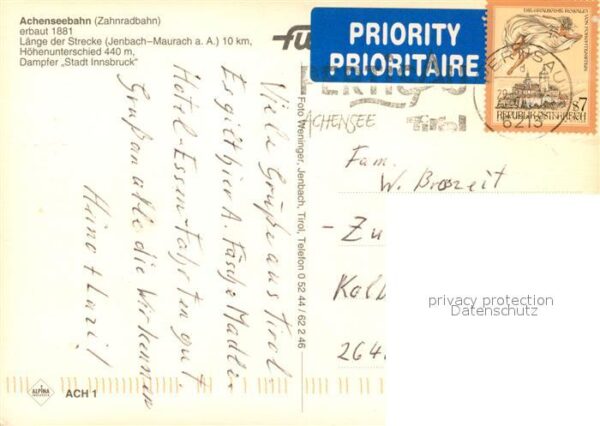 Achenseebahn (Zahnradbahn)
erbaut 1881
Länge der Strecke (Jenbach–Maurach a. A.) 10 km,
Höhenunterschied 440 m,
Dampfer „Stadt Innsbruck"
Viele Grüße aus Tirol
Es gilt hier A. Fäsche Madler
Hotel-Essen-Fahrten gut
Gruß an alle die Wir kennen
Heino + Lari!
ALPINA
ACH 1
Foto Weninger, Jenbach, Tirol, Telefon 0 52 44 / 62 2 46
PRIORITY
PRIORITAIRE
PERTISAU
ACHENSEE
Tirol
PERTISAU
6213
S7
REPUBLIK ÖSTERREICH
Fam.
W. Broszeit
- Zu
Kalb
264
privacy protection
Datenschutz